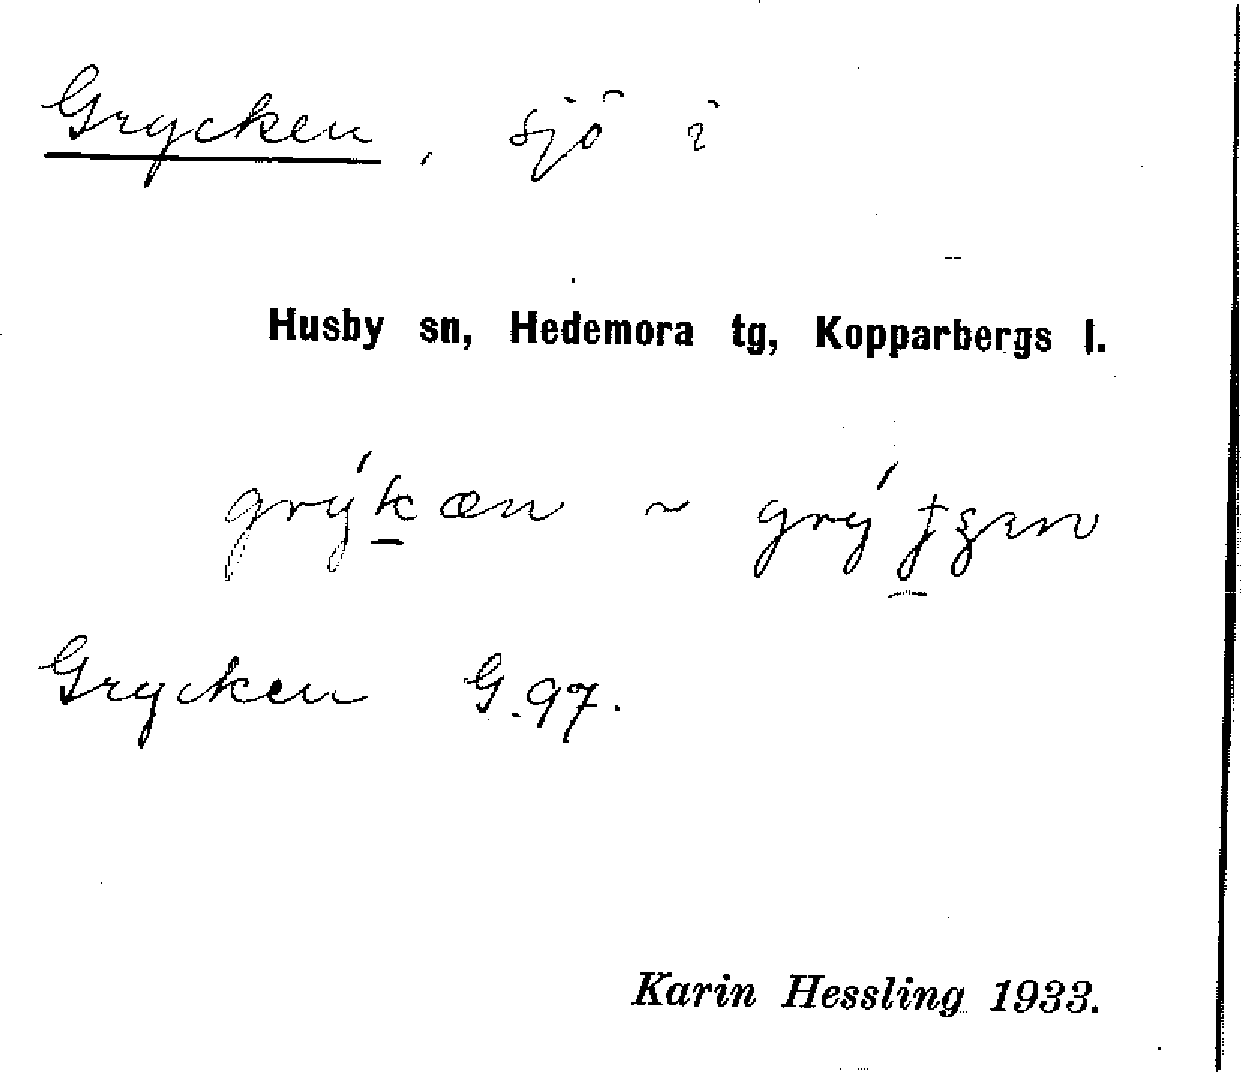 Grycken, sjö i
Husby sn, Hedemora tg, Kopparbergs l.
grý́kæn ~
Grycken G.97.
Karin Hessling 1933.